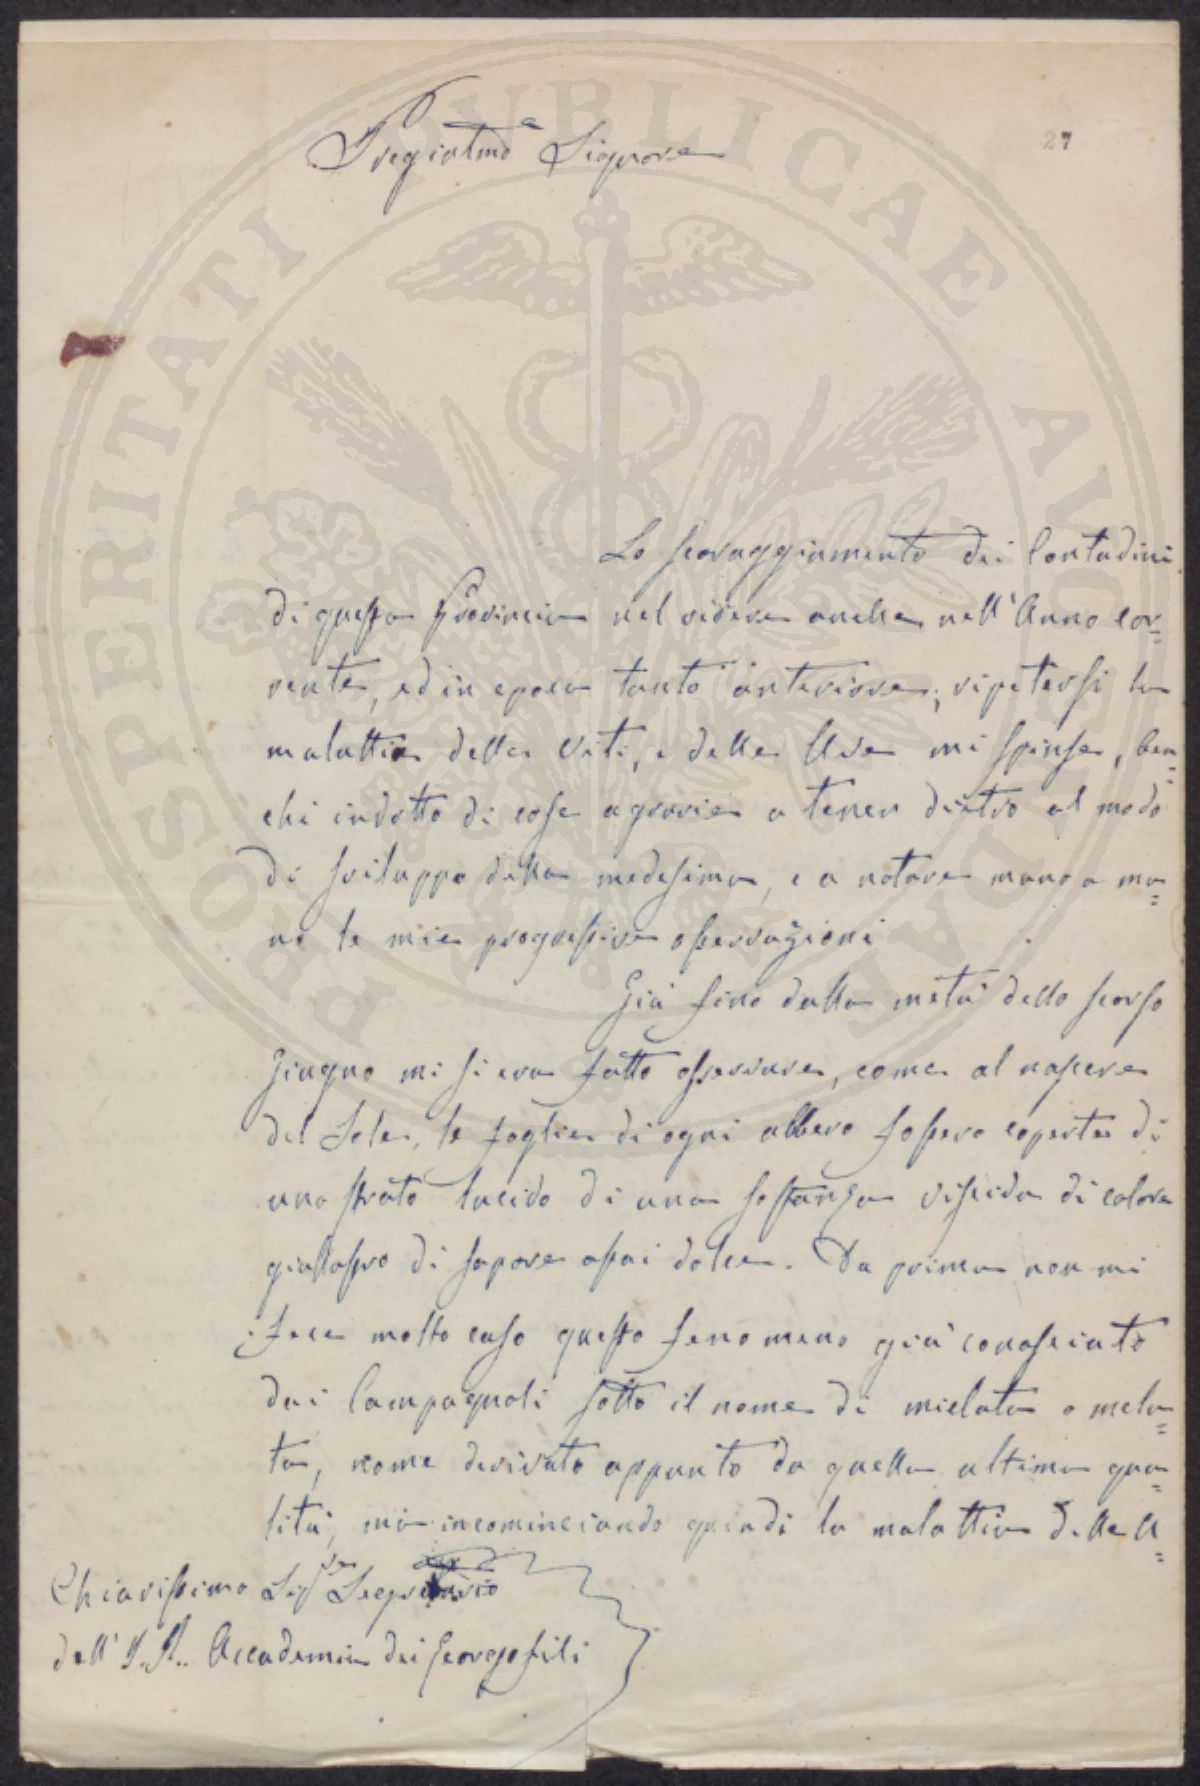 27
Pregiatmo Signore
Lo scoraggiamento dei Contadini
di questa Provincia nel vedere anche nell'Anno cor=
rente, ed in epoca tanto anteriore, ripetersi la
malattia delle Viti, e delle Uve mi spinse, ben=
chè indotto di cose agrarie a tener dietro al modo
di sviluppo della medesima, e a notare mano a ma=
no le mie progressive osservazioni
Già fino dalla metà dello scorso
Giugno mi si era fatto osservare, come al nascere
del Sole, le foglie di ogni albero fossero coperte di
uno strato lucido di una sostanza viscida di colore
giallastro di sapore assai dolce. Da prima non mi
fece molto caso questo fenomeno già conosciuto
dai Campagnoli sotto il nome di mielata o mela=
ta, nome derivato appunto da quella ultima qua=
lità, ma incominciando quindi la malattia delle U=
Chiarissimo Sigre Segretario
dell'I. R. Accademia dei Georgofili
PROSPERITATI PUBLICAE AUGENDAE